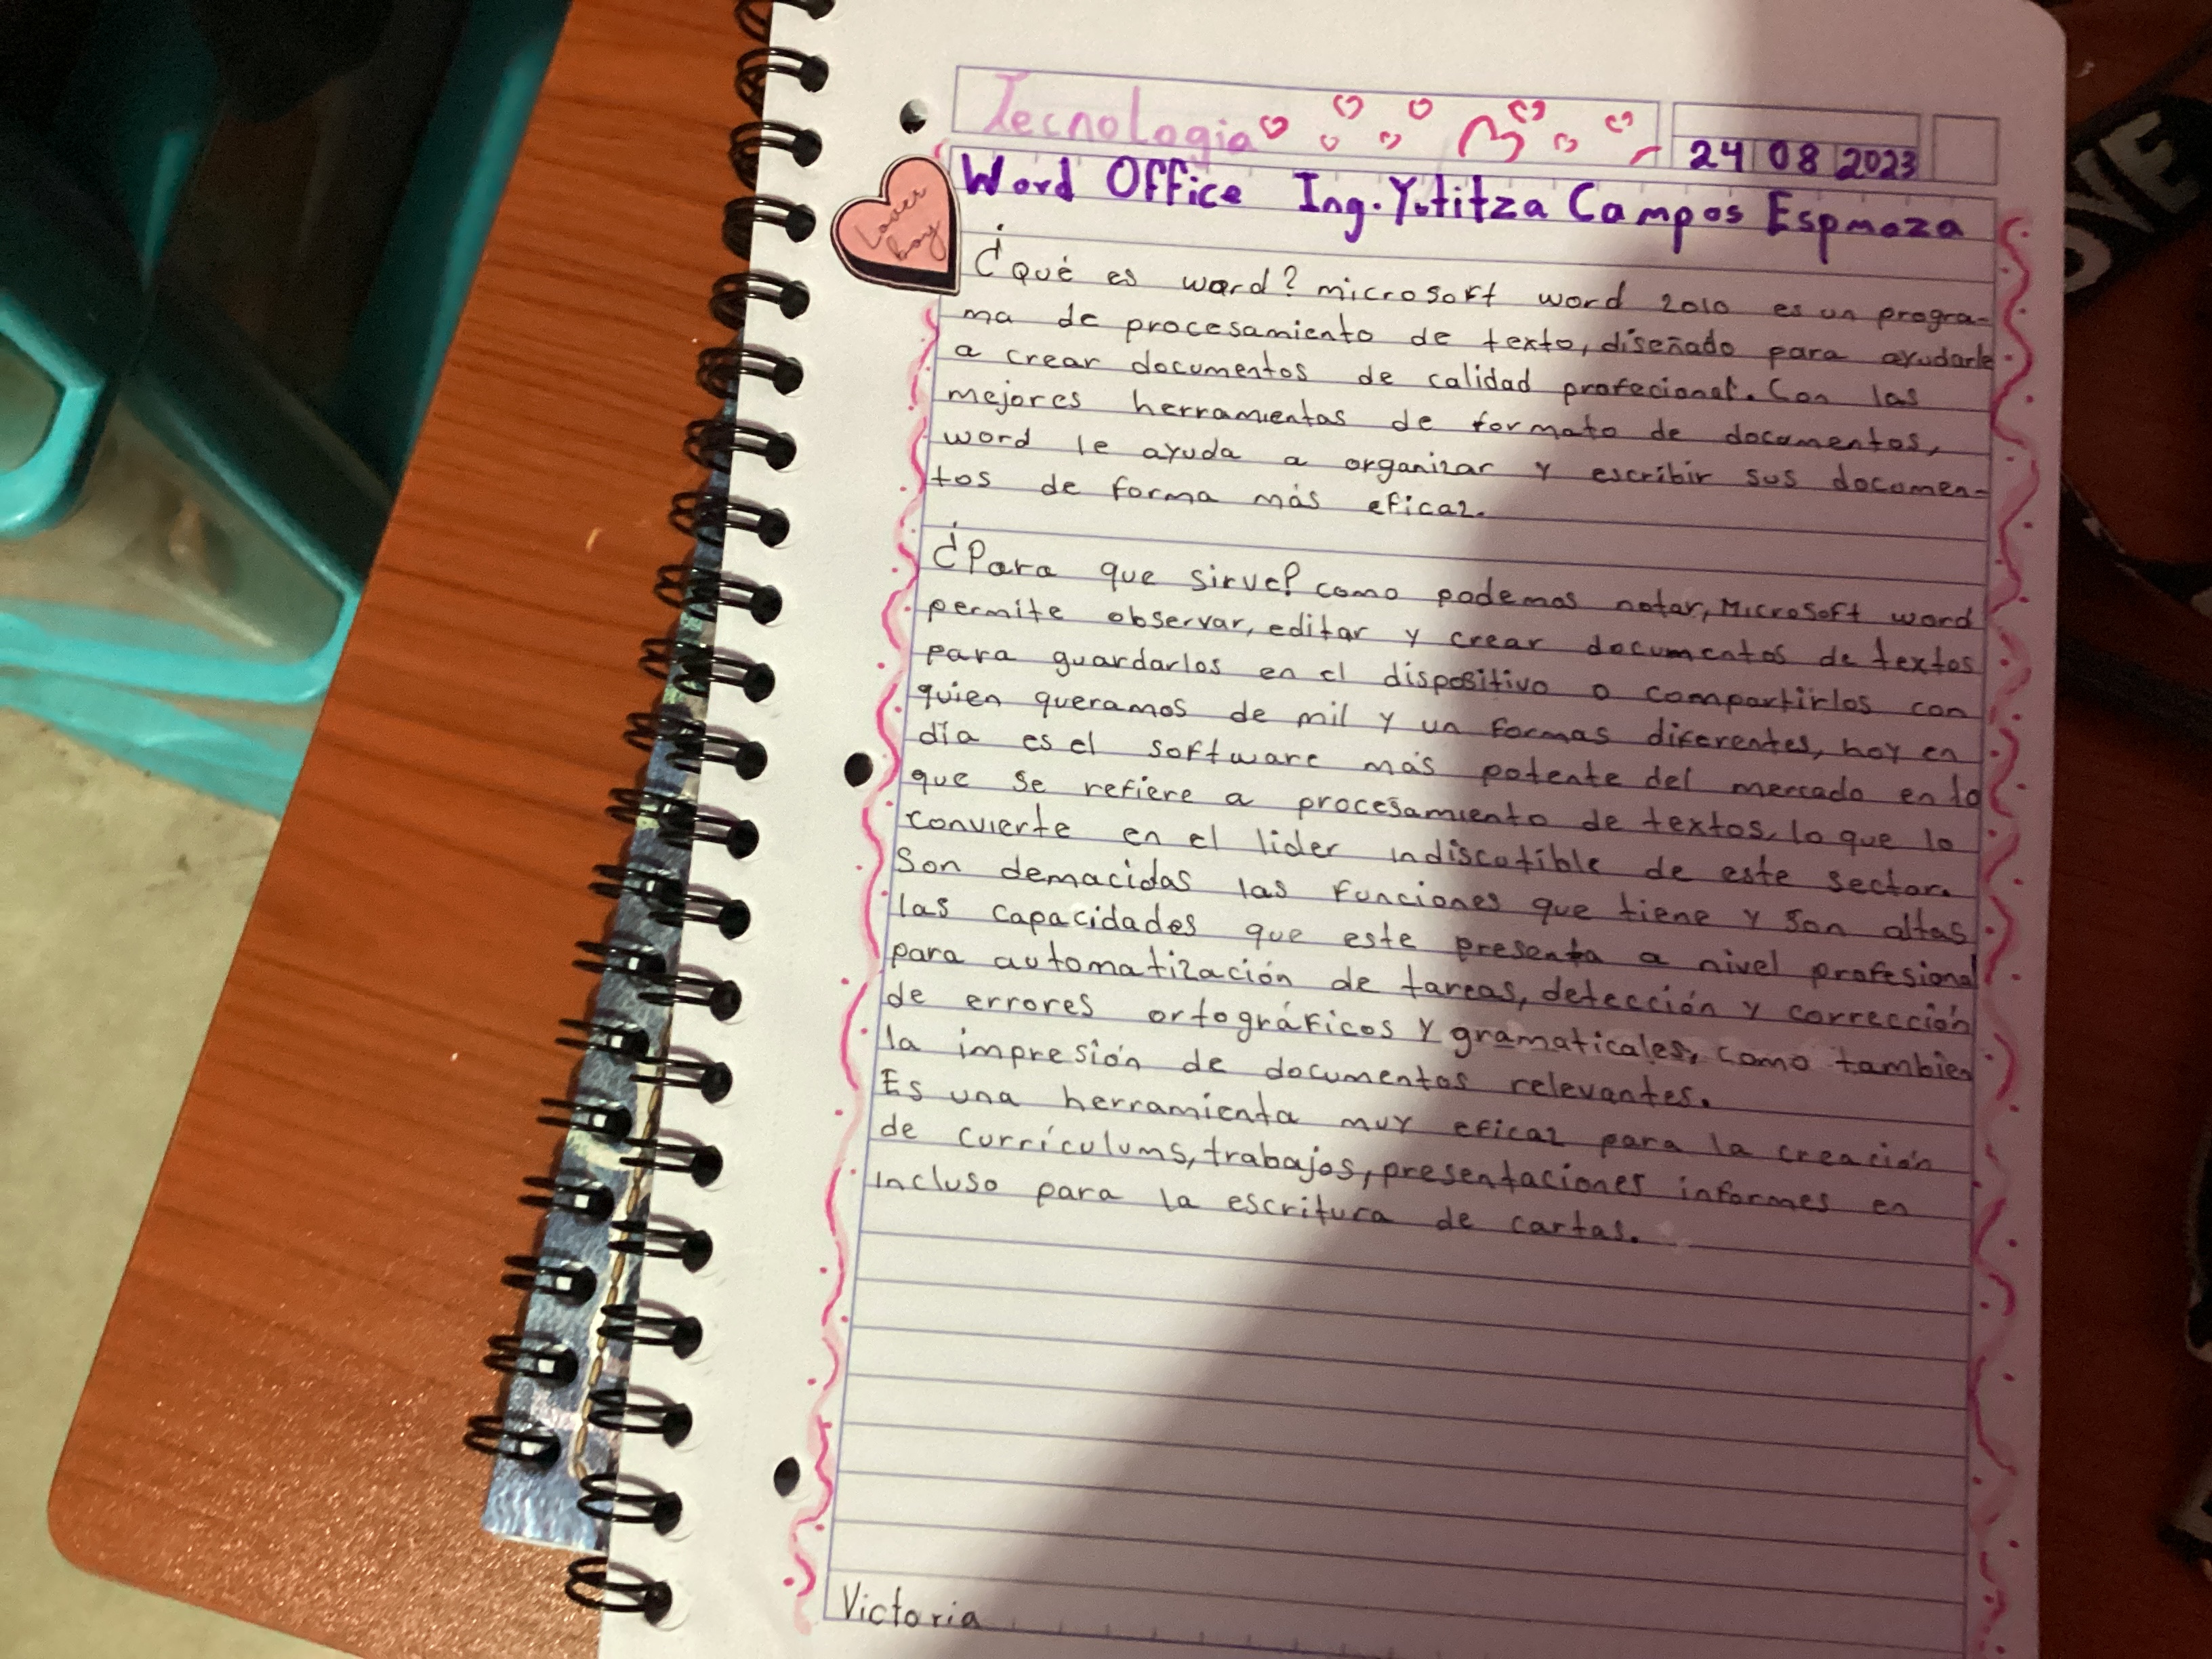 Tecnologia
24 08 2023
Word Office Ing. Yutitza Campos Espmoza
Lover boy
¿Qué es word? microsoft word 2010 es un progra-
ma de procesamiento de texto, diseñado para ayudarle
a crear documentos de calidad profecional. Con las
mejores herramientas de formato de documentos,
word le ayuda a organizar y escribir sus documen-
tos de forma más eficaz.
¿Para que sirve? como podemos notar, Microsoft word
permite observar, editar y crear documentos de textos
para guardarlos en el dispositivo o compartirlos con
quien queramos de mil y un formas diferentes, hoy en
día es el software más potente del mercado en lo
que se refiere a procesamiento de textos, lo que lo
convierte en el lider indiscutible de este sector.
Son demacidas las funciones que tiene y son altas
las capacidades que este presenta a nivel profesional
para automatización de tareas, detección y corrección
de errores ortográficos y gramaticales, como tambien
la impresión de documentos relevantes.
Es una herramienta muy eficaz para la creación
de currículums, trabajos, presentaciones informes en
incluso para la escritura de cartas.
Victoria
OVE